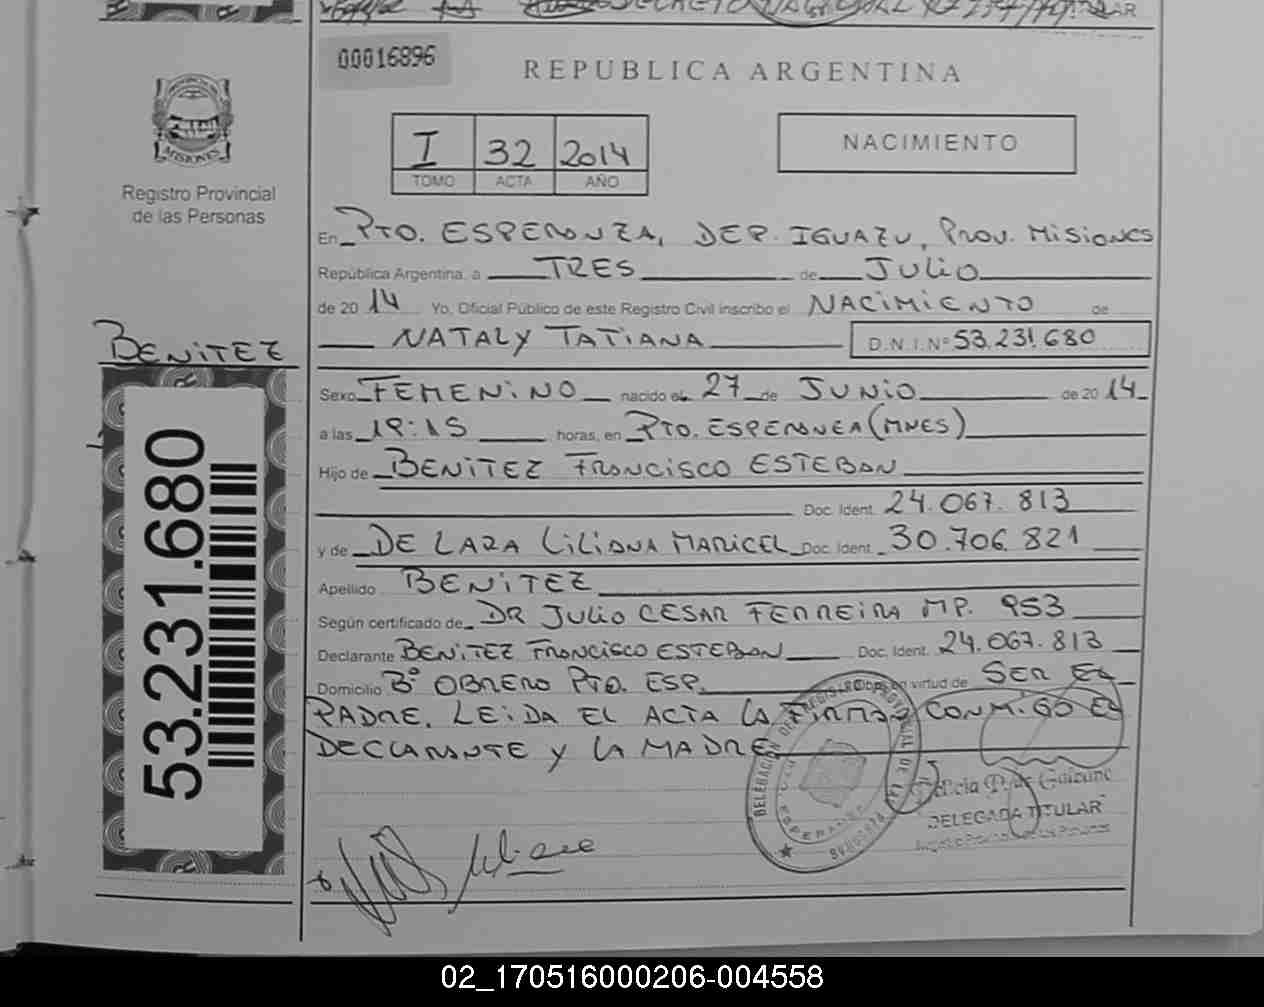 DECRETO NACIONAL
00016896
REPUBLICA ARGENTINA
MISIONES
Registro Provincial
de las Personas
I 32 2014
TOMO ACTA AÑO
NACIMIENTO
En PTO. ESPERANZA, DEP. IGUAZU, PROV. MISIONES
República Argentina, a TRES de JULIO
de 20 14 Yo, Oficial Público de este Registro Civil inscribo el NACIMIENTO de
NATALY TATIANA D.N.I. Nº 53.231.680
BENITEZ
Sexo FEMENINO nacido el 27 de JUNIO de 20 14
a las 19:15 horas, en PTO. ESPERANZA (MNES)
Hijo de BENITEZ FRANCISCO ESTEBAN
Doc. Ident. 24.067.813
y de DE LARA LILIANA MARICEL Doc. Ident. 30.706.821
Apellido BENITEZ
Según certificado de DR JULIO CESAR FERREIRA MP. 953
Declarante BENITEZ FRANCISCO ESTEBAN Doc. Ident. 24.067.813
Domicilio Bº OBRERO PTO. ESP. en virtud de SER EL
PADRE. LEIDA EL ACTA LA FIRMAN CONMIGO EL
DECLARANTE Y LA MADRE
53.231.680
DELEGADA TITULAR
02_170516000206-004558